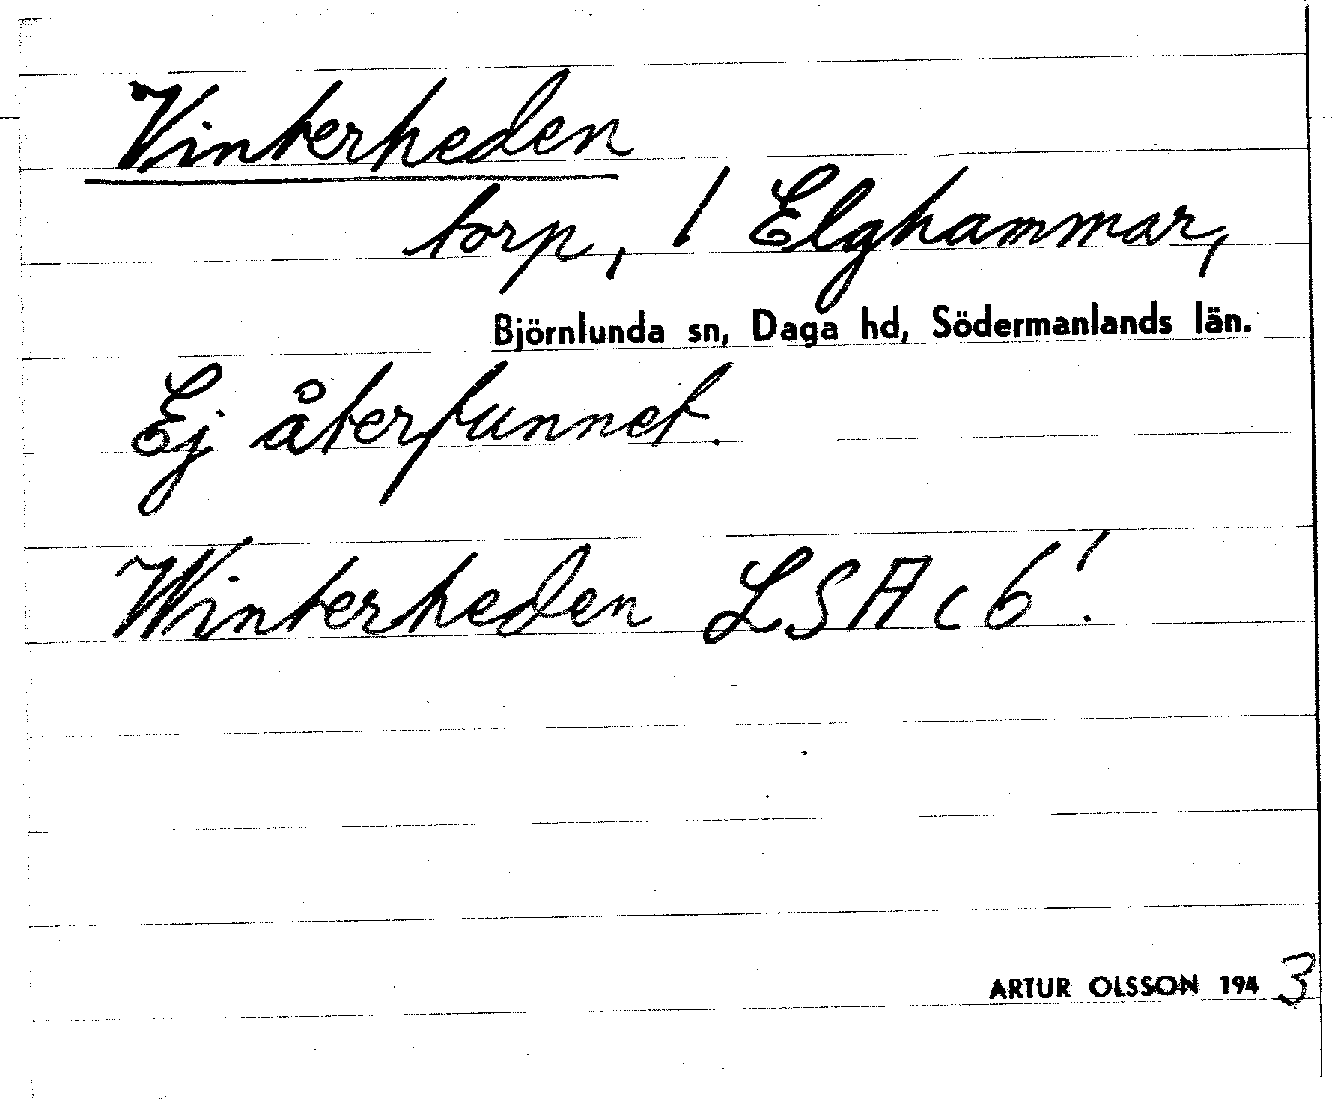 Vinterheden
torp, / Elghammar,
Björnlunda sn, Daga hd, Södermanlands län.
Ej återfunnet.
Winterheden LSA c6!
ARTUR OLSSON 1943